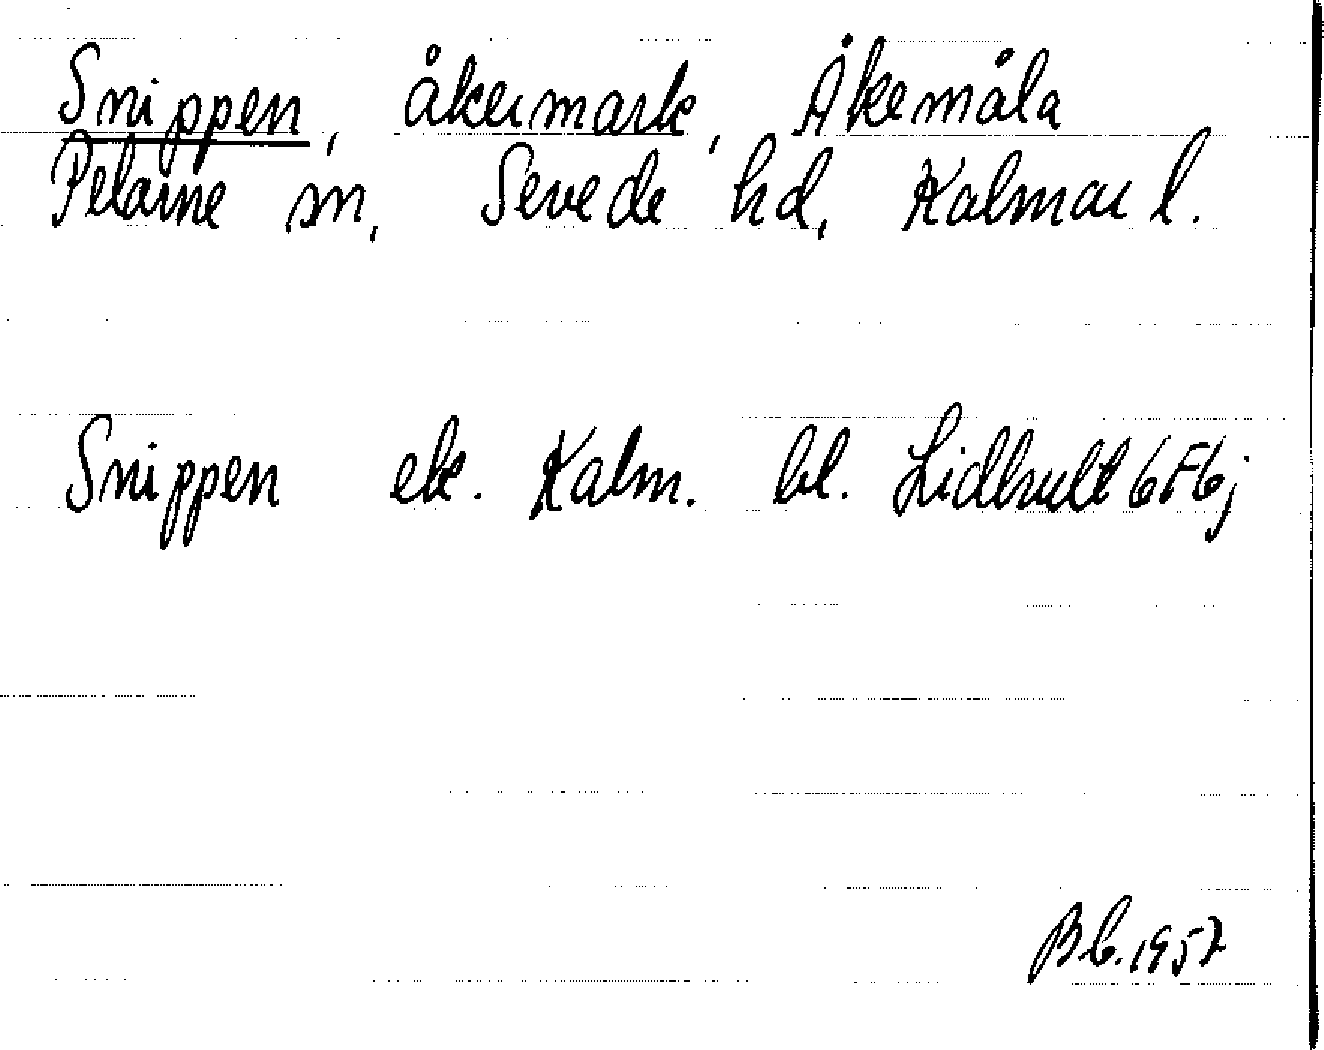 Snippen, åkermark, Åkemåla
Pelarne sn, Sevede hd, Kalmar l.
Snippen ek. Kalm. bl. Lidhult 6F6j
Bb. 1957